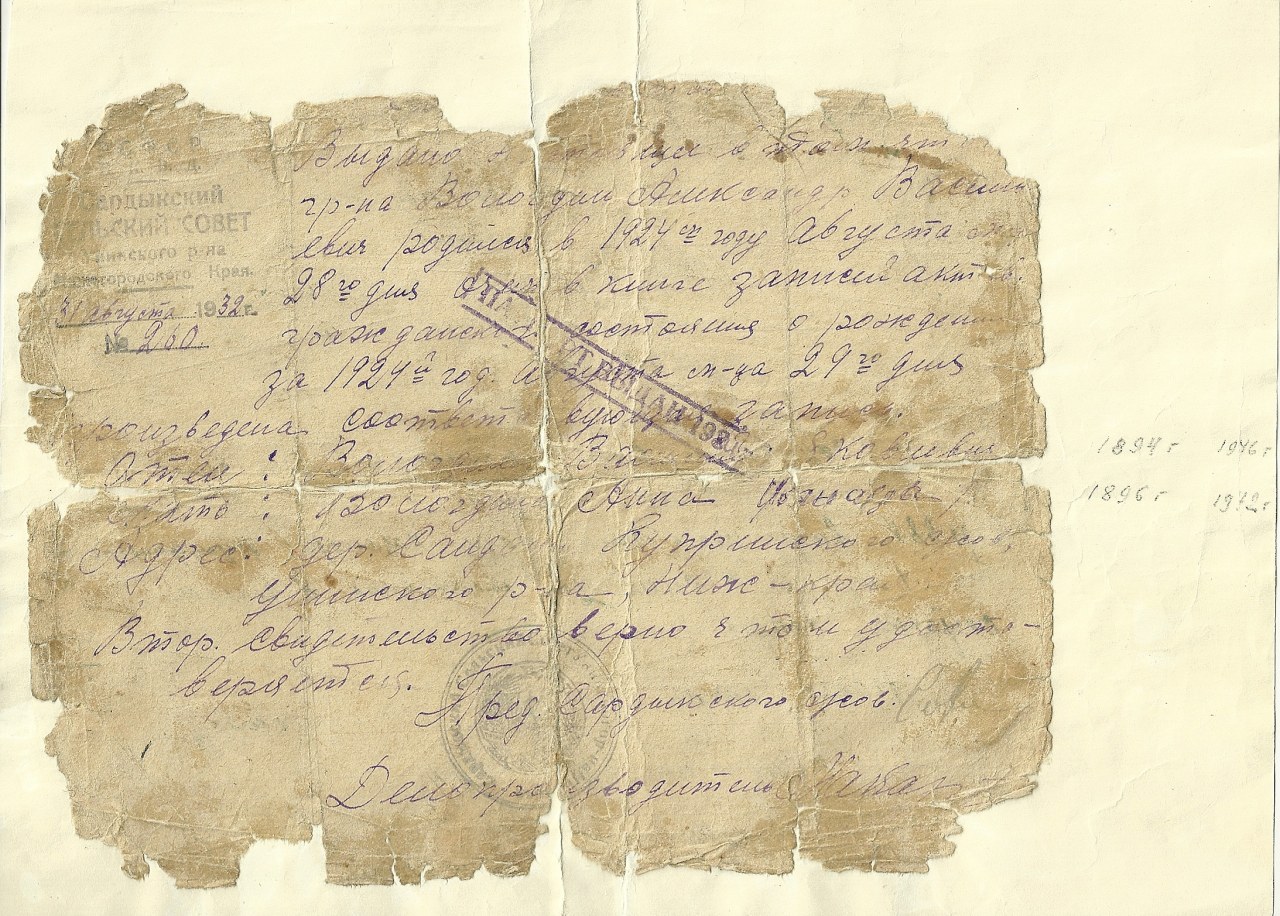 ардыкский
ЛЬСКИЙ СОВЕТ
инского р-на
Нижегородского Края.
31 августа 1932 г.
№ 260.
Выдано в том что
гр-на Вологдин Александр Василь
евич родился в 1924 ом году Августа
28 го дня в книге записей актов
гражданск состояния о рождени
за 1924 й год. А густа м-ца 29 го дня
произведена соответствующая запись.
ПАСПОРТ ВЫДАН 193
Отец: Вологдин Вас Яковлевич
Мать: Вологдина Анна
Адрес: дер. Санд Купринского с/сов,
Унинского р-на, Ниж-края
Втор. свидетельство верно что и удосто-
веряется.
Пред. Сардыкского с/сов.
Делопроизводитель
1894 г 1946 г
1896 г 1942 г